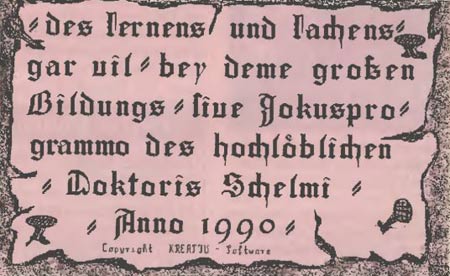 ⸗ des Lernens und Lachens ⸗
gar vil ⸗ bey deme großen
Bildungs ⸗ sive Jokuspro⸗
grammo des hochlöblichen
⸗ Doktoris Schelmi ⸗
⸗ Anno 1990 ⸗
Copyright KREATIV - Software